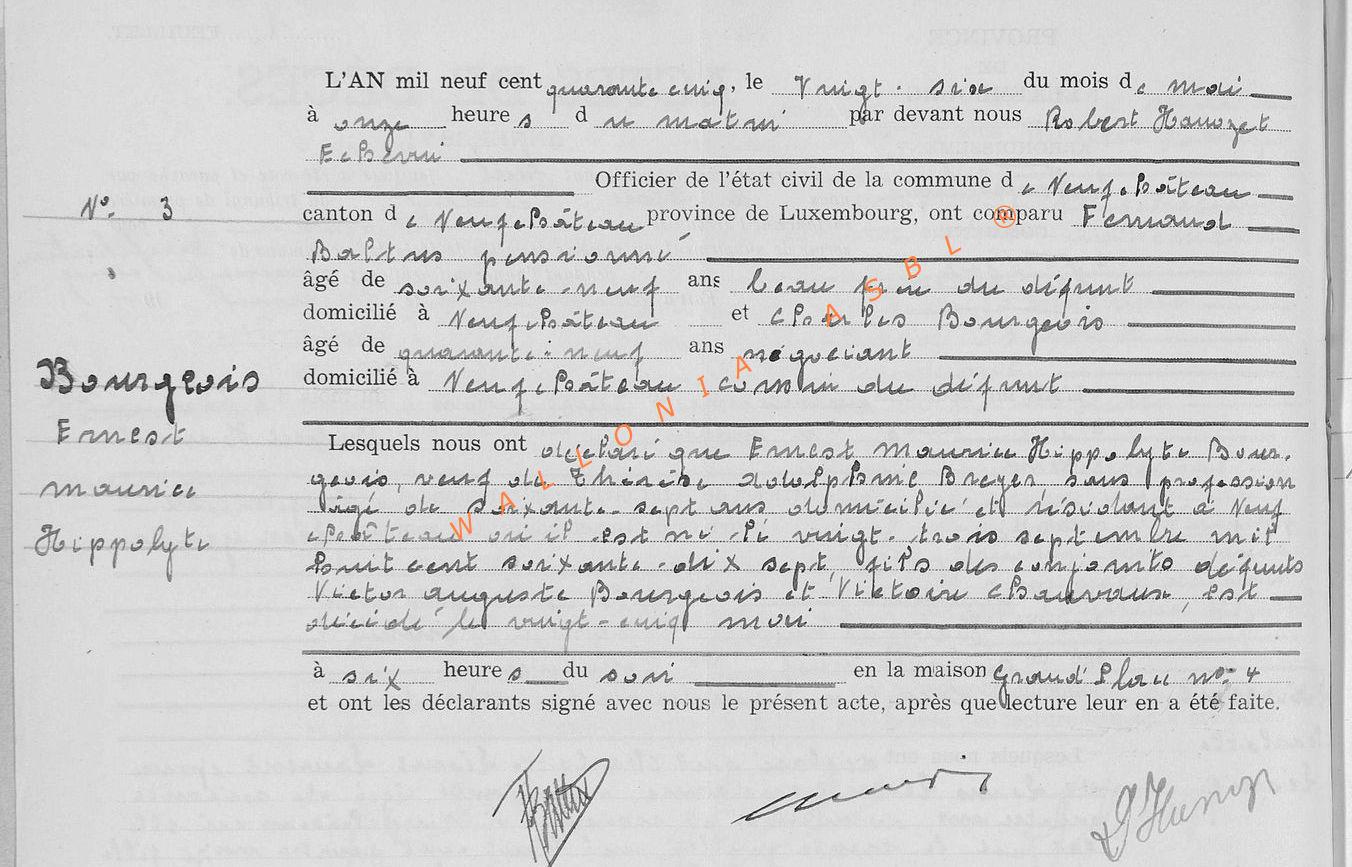 L'AN mil neuf cent quarante cinq, le Vingt-six du mois de mai
à onze heures du matin par devant nous Robert
Echevin
Officier de l'état civil de la commune de Neufchâteau
N° 3
canton de Neufchâteau province de Luxembourg, ont comparu Fernand
Baltus pensionné
âgé de soixante-neuf ans beau frère du défunt
domicilié à Neufchâteau et Charles Bourgeois
âgé de quarante-neuf ans négociant
domicilié à Neufchâteau cousin du défunt
Bourgeois
Ernest
Maurice
Hippolyte
Lesquels nous ont déclaré que Ernest Maurice Hippolyte Bour-
geois, veuf de Thérèse Adolphine Breyer sans profession
âgé de soixante-sept ans domicilié et résidant à Neuf
château où il est né le vingt-trois septembre mil
huit cent soixante-dix sept, fils des conjoints défunts
Victor Auguste Bourgeois et Victoire Chauvaux, est
décédé le vingt-cinq mai
à six heures du soir en la maison Grand'Place n° 4
et ont les déclarants signé avec nous le présent acte, après que lecture leur en a été faite.
WALLONIA ASBL ®